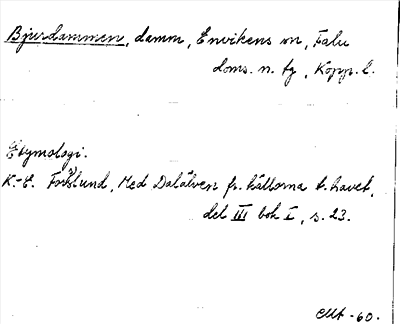 Bjurdammen, damm, Envikens sn, Falu
doms. n. tg, Kopp. l.
Etymologi.
K.-E. Forsslund, Med Dalälven fr. källorna t. havet,
del III bok I, s. 23.
-60.